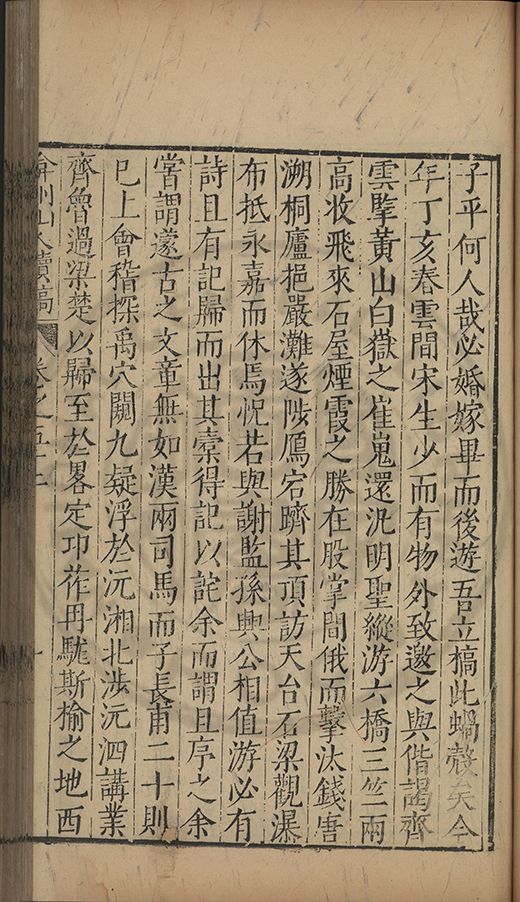 子平何人哉必婚嫁畢而後遊吾立槁此蝸殼矣今
年丁亥春雲間宋生少而有物外致邀之與偕謁齊
雲擥黃山白嶽之崔嵬還汎明聖縱游六橋三竺兩
高收飛來石屋煙霞之勝在股掌間俄而擊汰錢唐
溯桐廬挹嚴灘遂陟鴈宕躋其頂訪天台石梁觀瀑
布抵永嘉而休焉怳若與謝監孫興公相值游必有
詩且有記歸而出其槖得記以詫余而謂且序之余
嘗謂邃古之文章無如漢兩司馬而子長甫二十則
巳上會稽探禹穴闚九疑浮於沅湘北涉沅泗講業
齊魯過梁楚以歸至於畧定卭莋冉駹斯榆之地西
弇州山人續稿 卷之五十